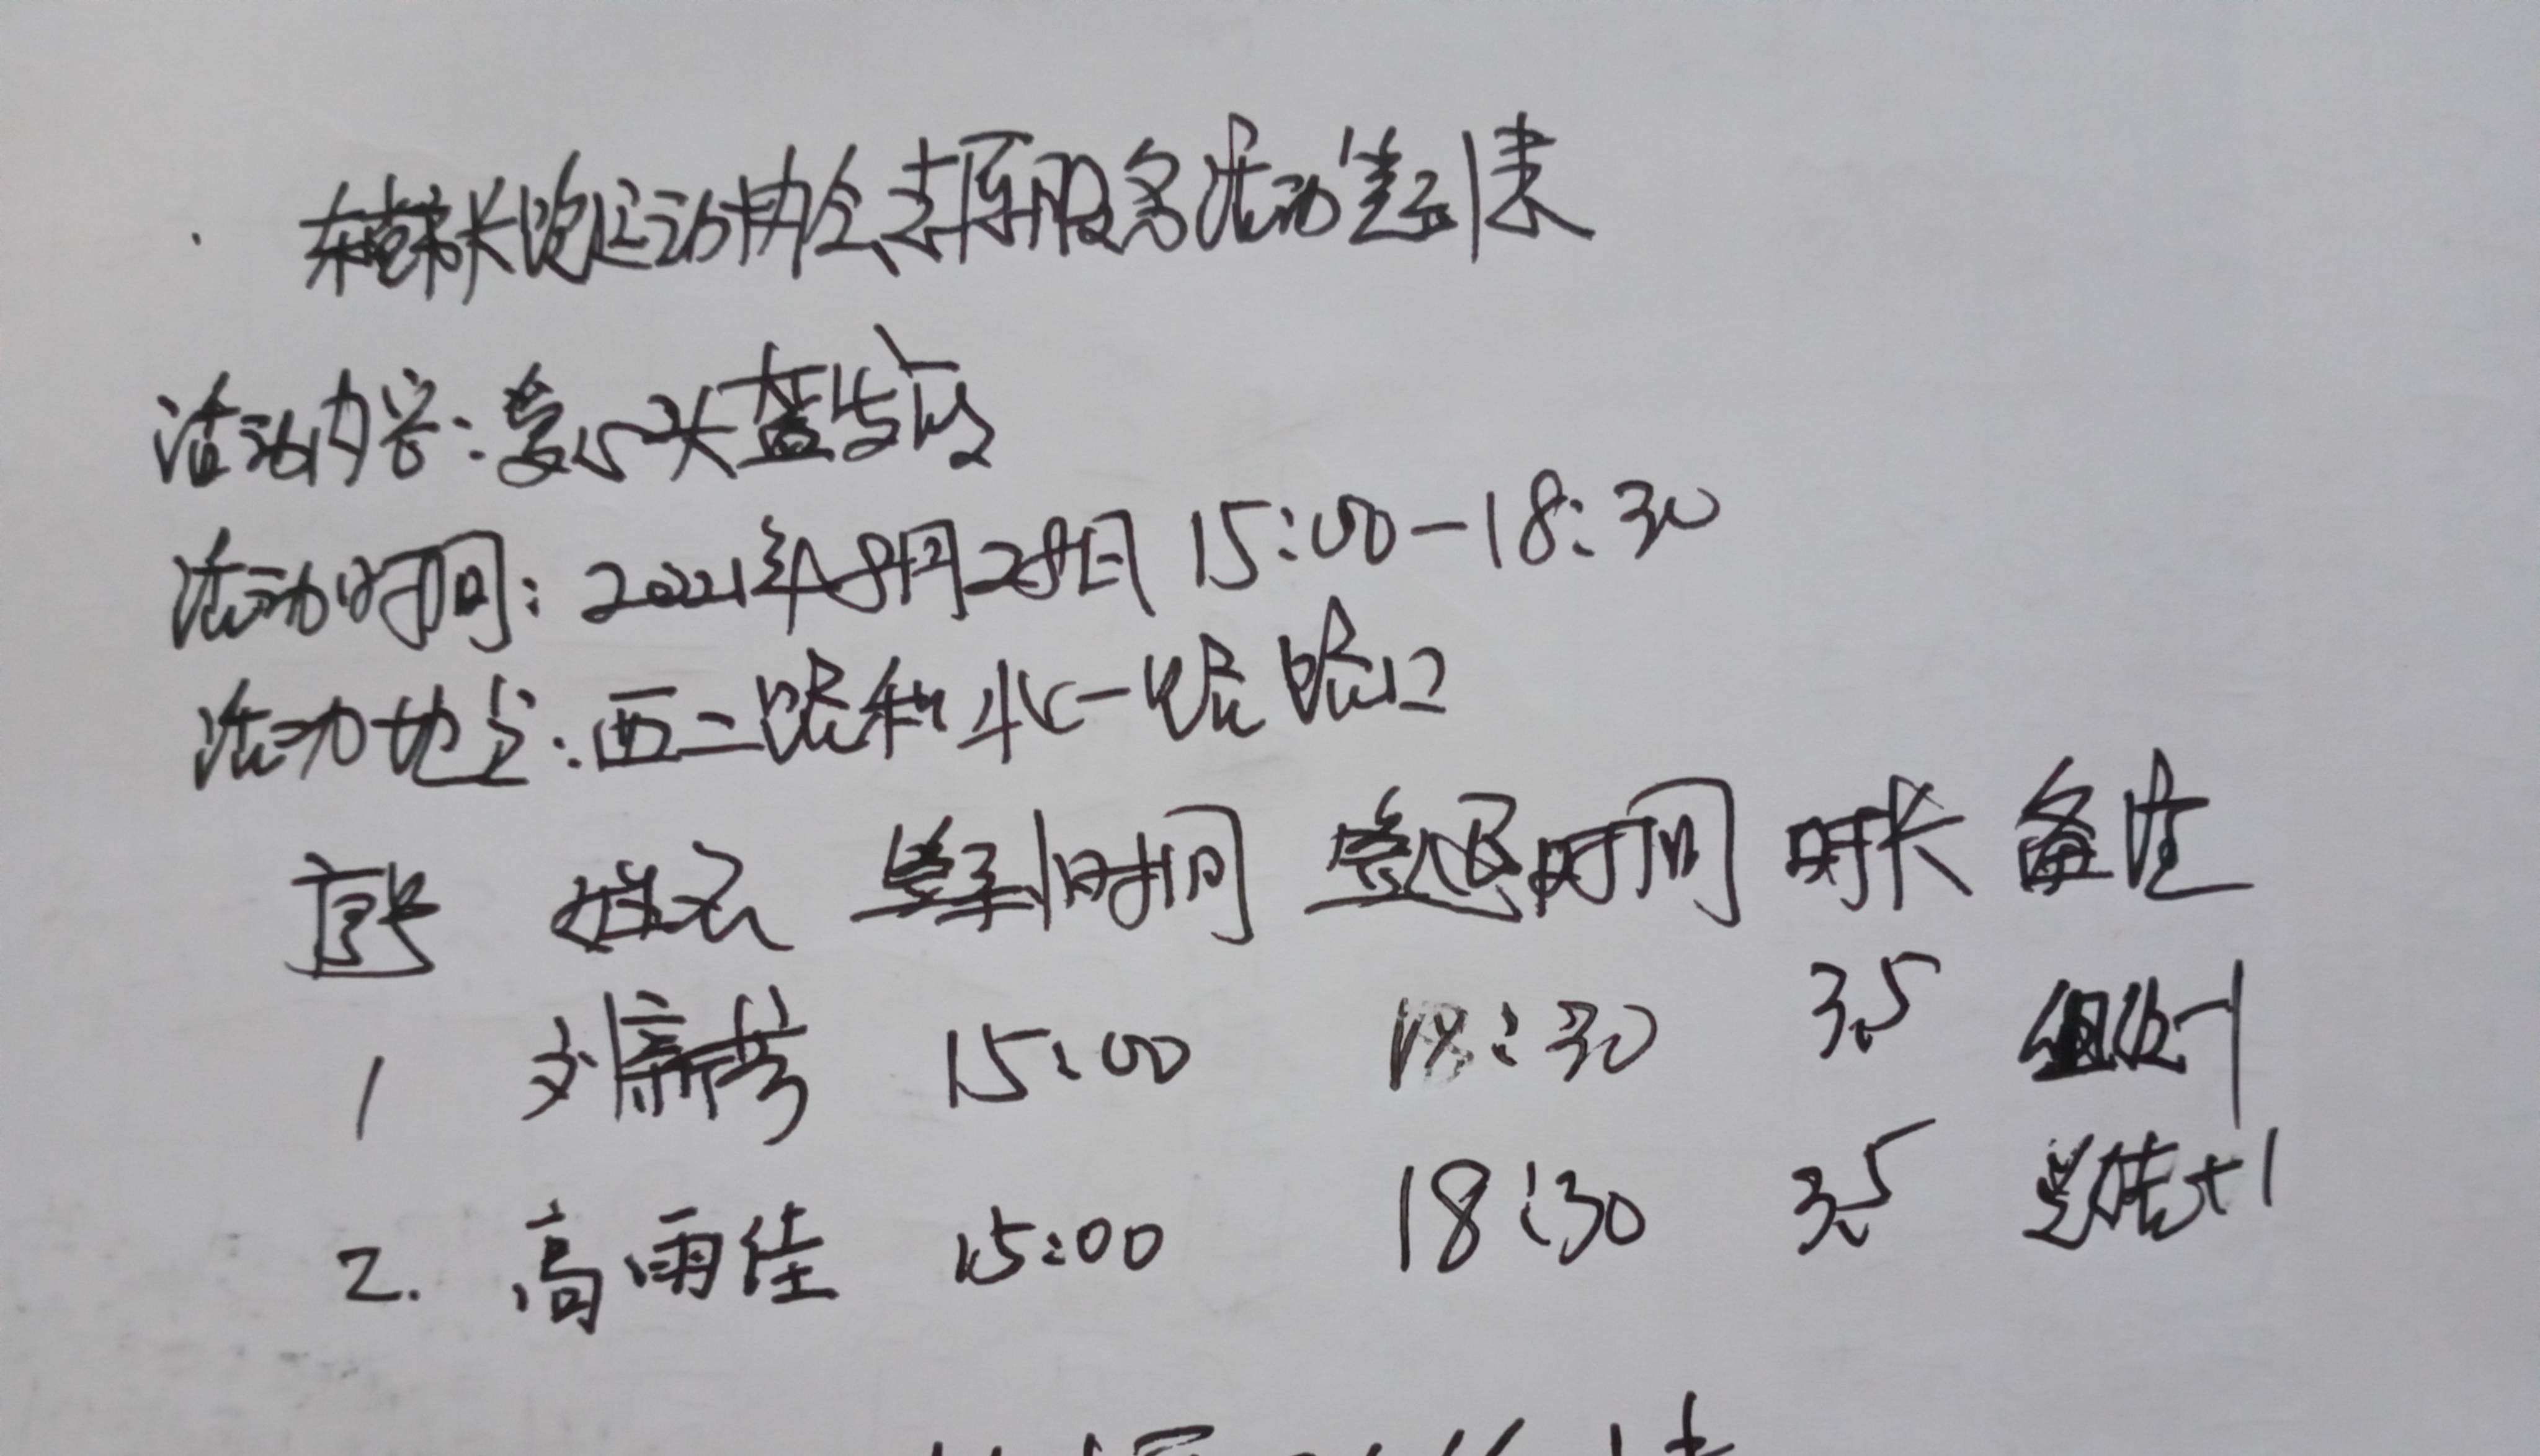 长跑运动协会志愿服务活动签到表
活动内容:爱心头盔发放
活动时间:2021年8月28日 15:00-18:30
活动地点:西二路和北一路路口
序号 姓名 签到时间 签退时间 时长 备注
1 刘 15:00 18:30 3.5 组织+1
2. 高雨佳 15:00 18:30 3.5 总结+1